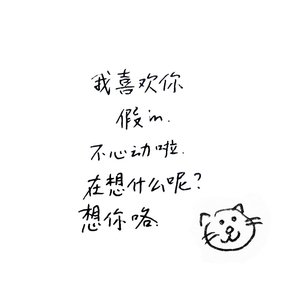 我喜欢你
假in.
不心动啦.
在想什么呢?
想你咯.